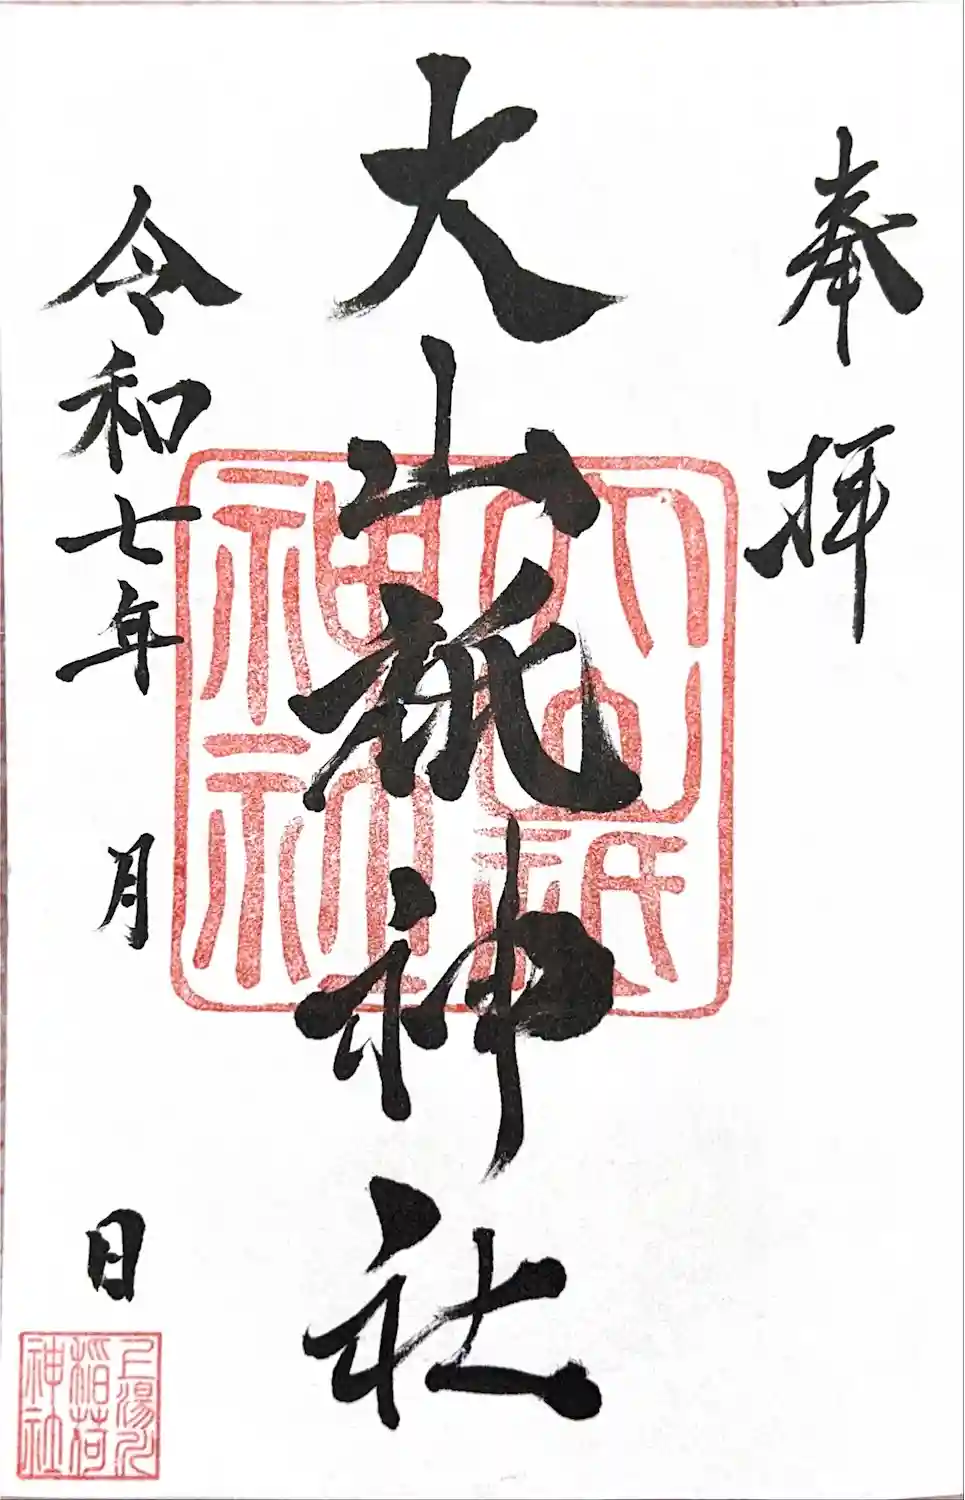 奉拝
大山祇神社
令和七年 月 日
大山祇神社
上湯川
稲荷
神社